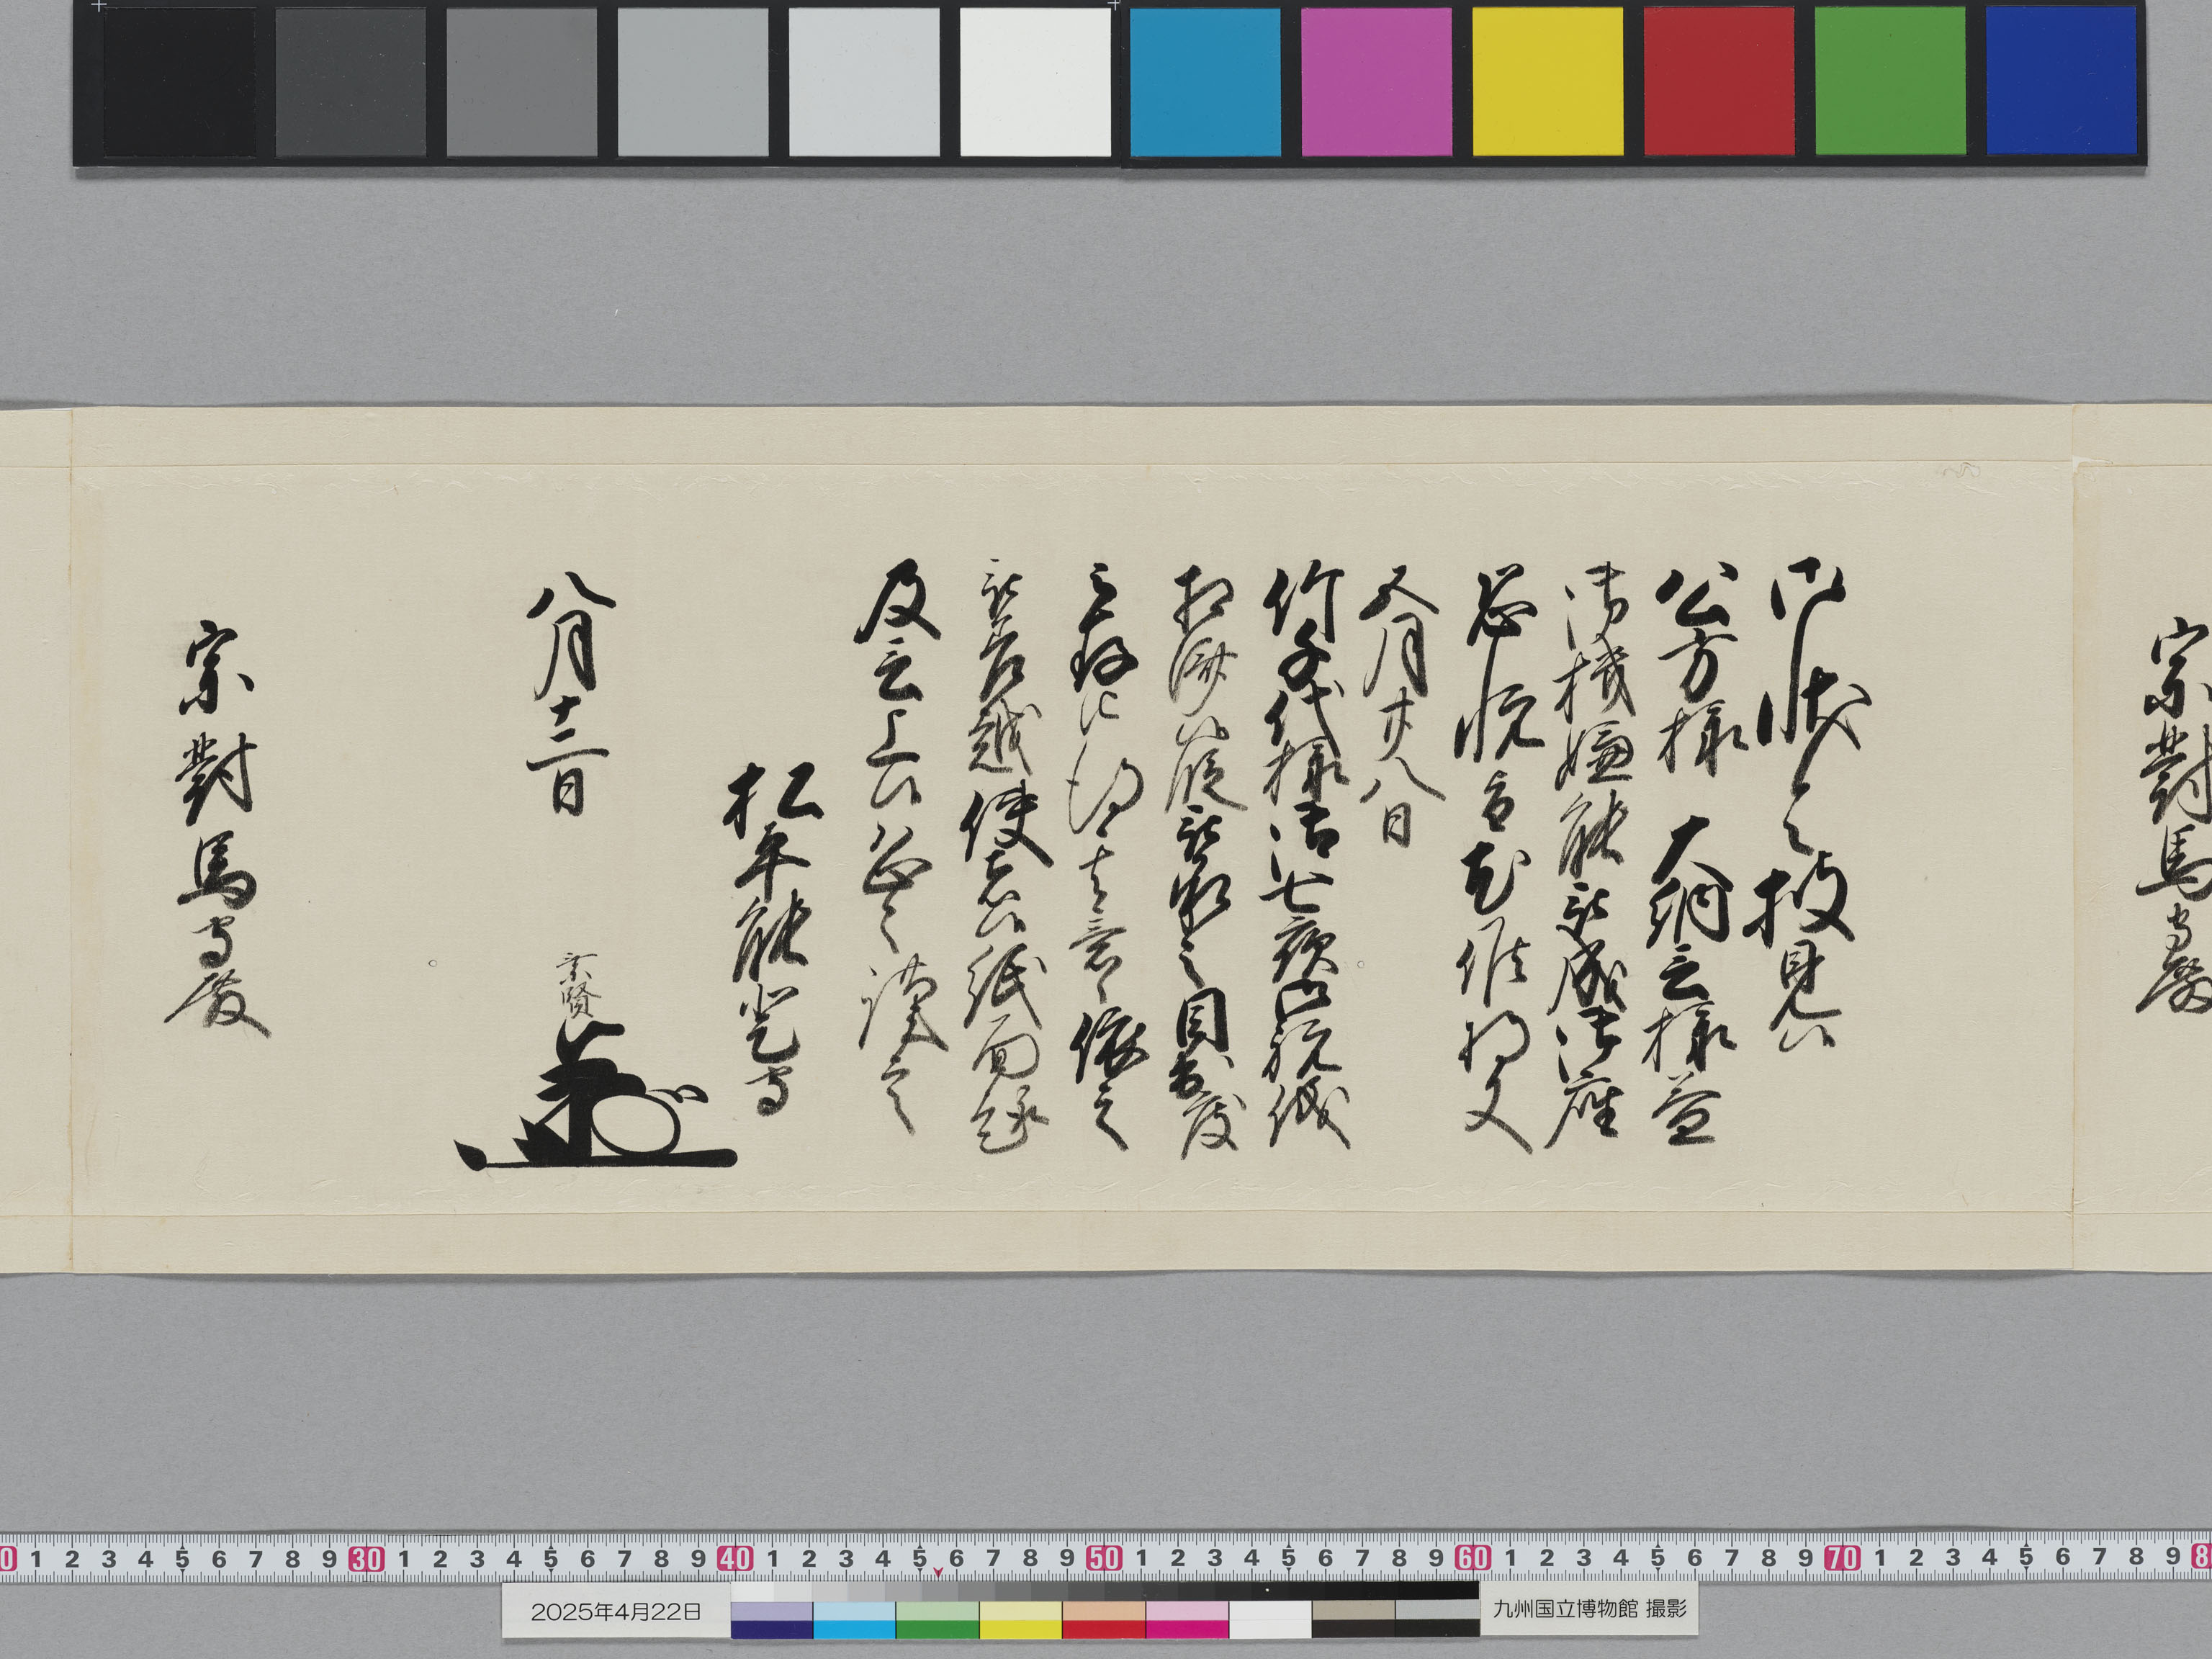 御状令披見候
公方様 大納言様益
御機嫌能被成御座
恐悦旨尤候将又
五月廿八日
竹千代様御七夜御祝儀
相済候段被承之目出度
被存越使者候紙面趣
及言上候恐々謹言
松平能登守
八月十三日
乗賢
宗對馬守殿
宗對馬守殿
0 1 2 3 4 5 6 7 8 9 30 1 2 3 4 5 6 7 8 9 40 1 2 3 4 5 6 7 8 9 50 1 2 3 4 5 6 7 8 9 60 1 2 3 4 5 6 7 8 9 70 1 2 3 4 5 6 7 8 9 8
2025年4月22日
九州国立博物館 撮影